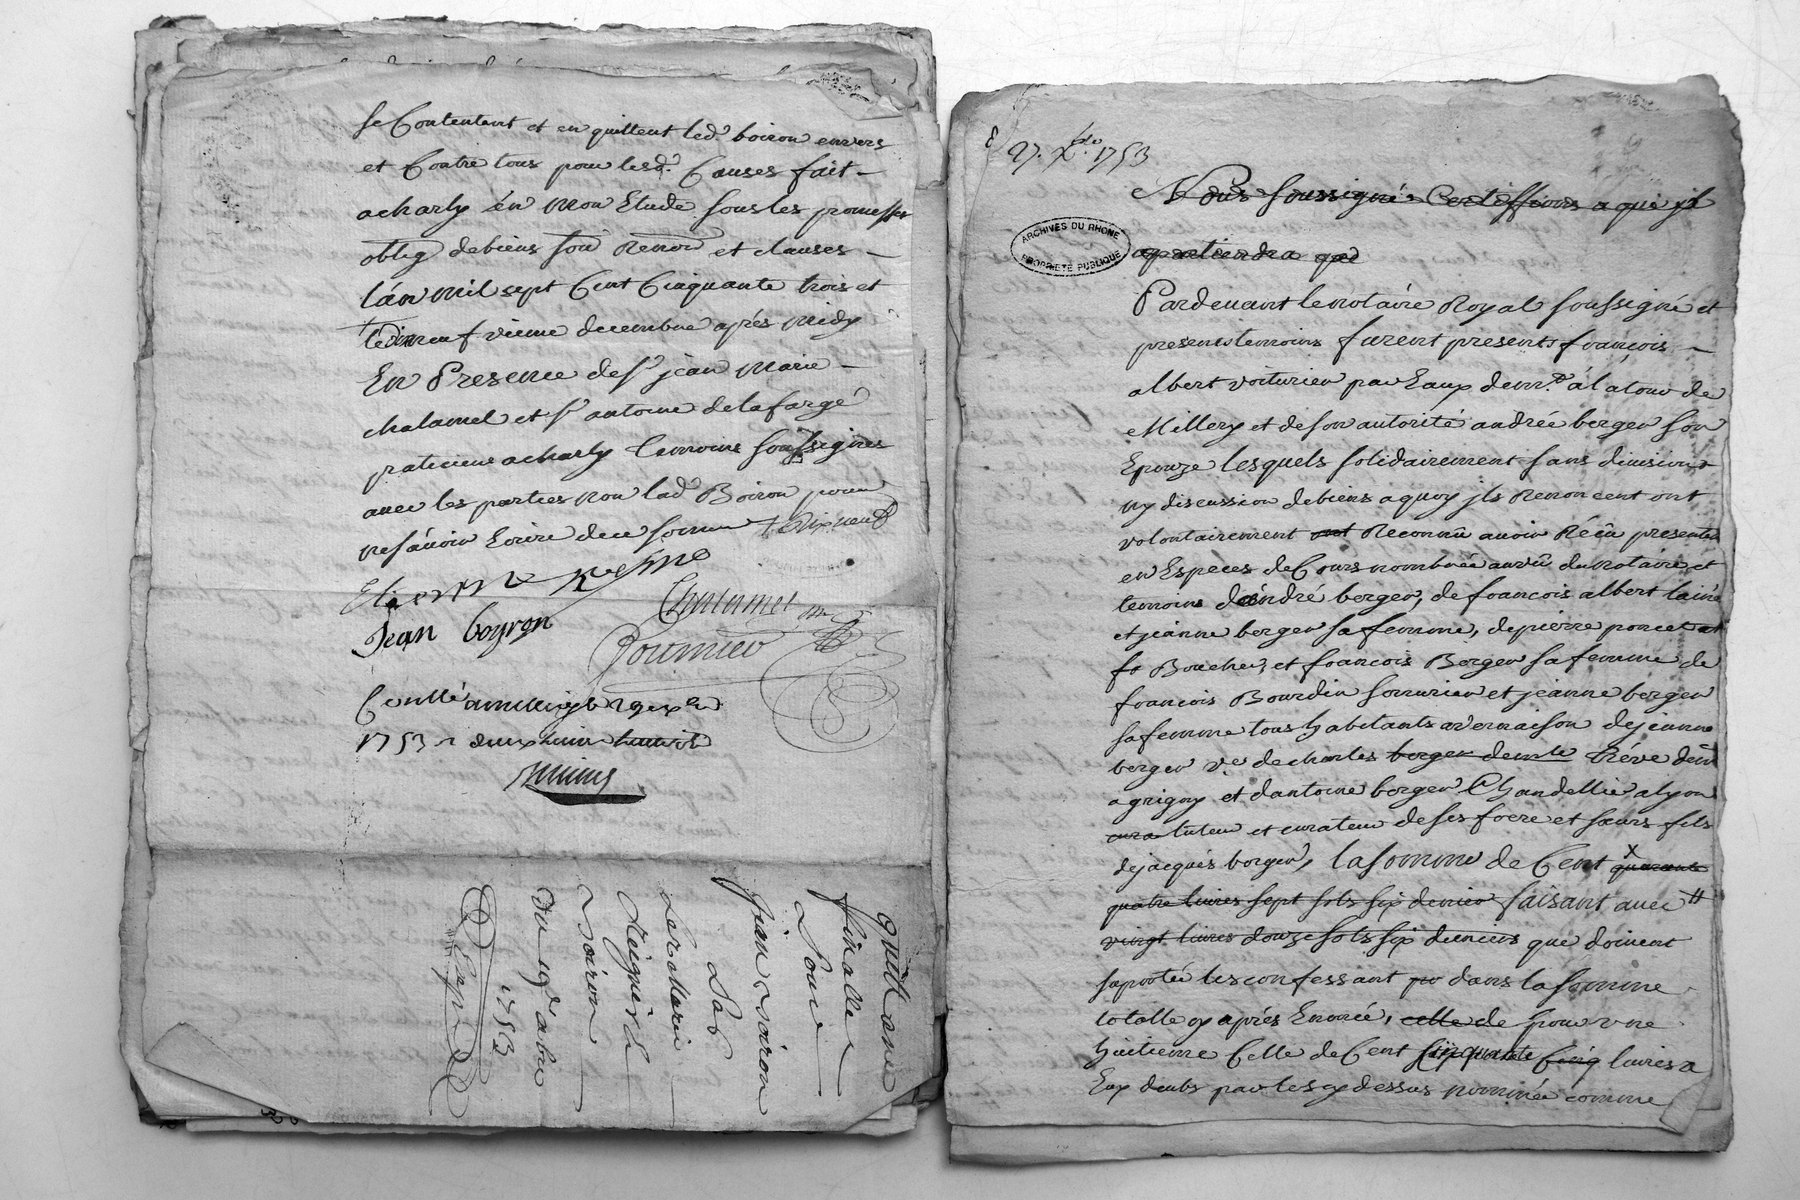 se Contentant et en quittent led.t boiron envers
et Contre tous pour lesd. Causes fait
a charly en mon Etude sous les promesses
oblig debiens soū Renon et clauses
l'an mil sept Cent Cinquante trois et
le dixneuf vieme decembre aprés midy
En Presence de sr jean marie
chalamel et sr antoine delafarge
praticiens a charly temoins soussignes
avec les parties non lad Boiron pour
ne sçavoir Ecrire de ce somme + dixneuf
Etienne
Jean boyron Chalamel
Conllé
1753 r
quittance
finalle
pour
jean Boiron
Par
marie
Boiron
Du 19e xbre
1753
27. Xbre 1753
Nous soussignés Certiffions a qui jl
apartiendra que
ARCHIVES DU RHÔNE
PROPRIÉTÉ PUBLIQUE
Pardevant le notaire Royal soussigné et
presents temoins furent presents françois
albert voiturier par Eaux dem.t a la tour de
Millery et de son autorité andrée berger son
Epouze lesquels solidairement sans division
ny discussion debiens a quoy jls Renoncent ont
volontairement ont Reconnû avoir Récû presentem
en Especes de Cours nombrée au vû du notaire et
temoins d'andré berger, de francois albert lainé
et jeanne berger sa femme, de pierre poncet et
fr Boucher, et francois Berger sa femme de
francois Bourdin serrurier et jeanne berger
sa femme tous habitants a vernaison de jeanne
berger ve de charles berger demte Tréve demt
a grigny et dantoine berger Chandellier a lyon
cura tuteur et curateur de ses frere et sœurs fils
de jacques berger, la somme de Cent x quarante
quatre livres sept sols six denier faisant avec #
vingt livres douze sols six deniers que doivent
suportée les confessant pr dans la somme
totalle cy aprés Enoncée, celle de pour une
huitieme Celle de Cent Cinquante Cinq livres a
Eux deubs par les cy dessus nommée comme